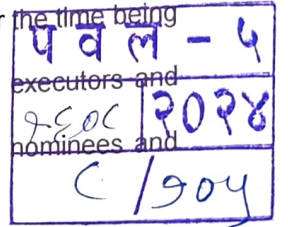 r the time being
प व ल - ५
executors and
२६०८ २०२४
nominees and
८ / १०५